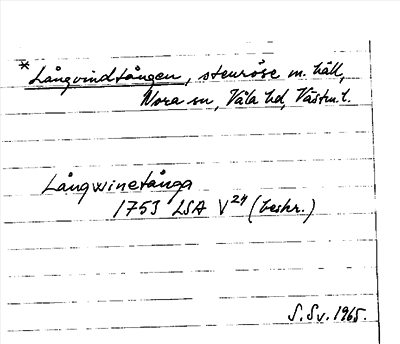 * Långvindtången, stenröse m. häll,
Nora sn, Våla hd, Västm. l.
Långwinetånga
1753 LSA V24 (beskr.)
S. Sv. 1965.